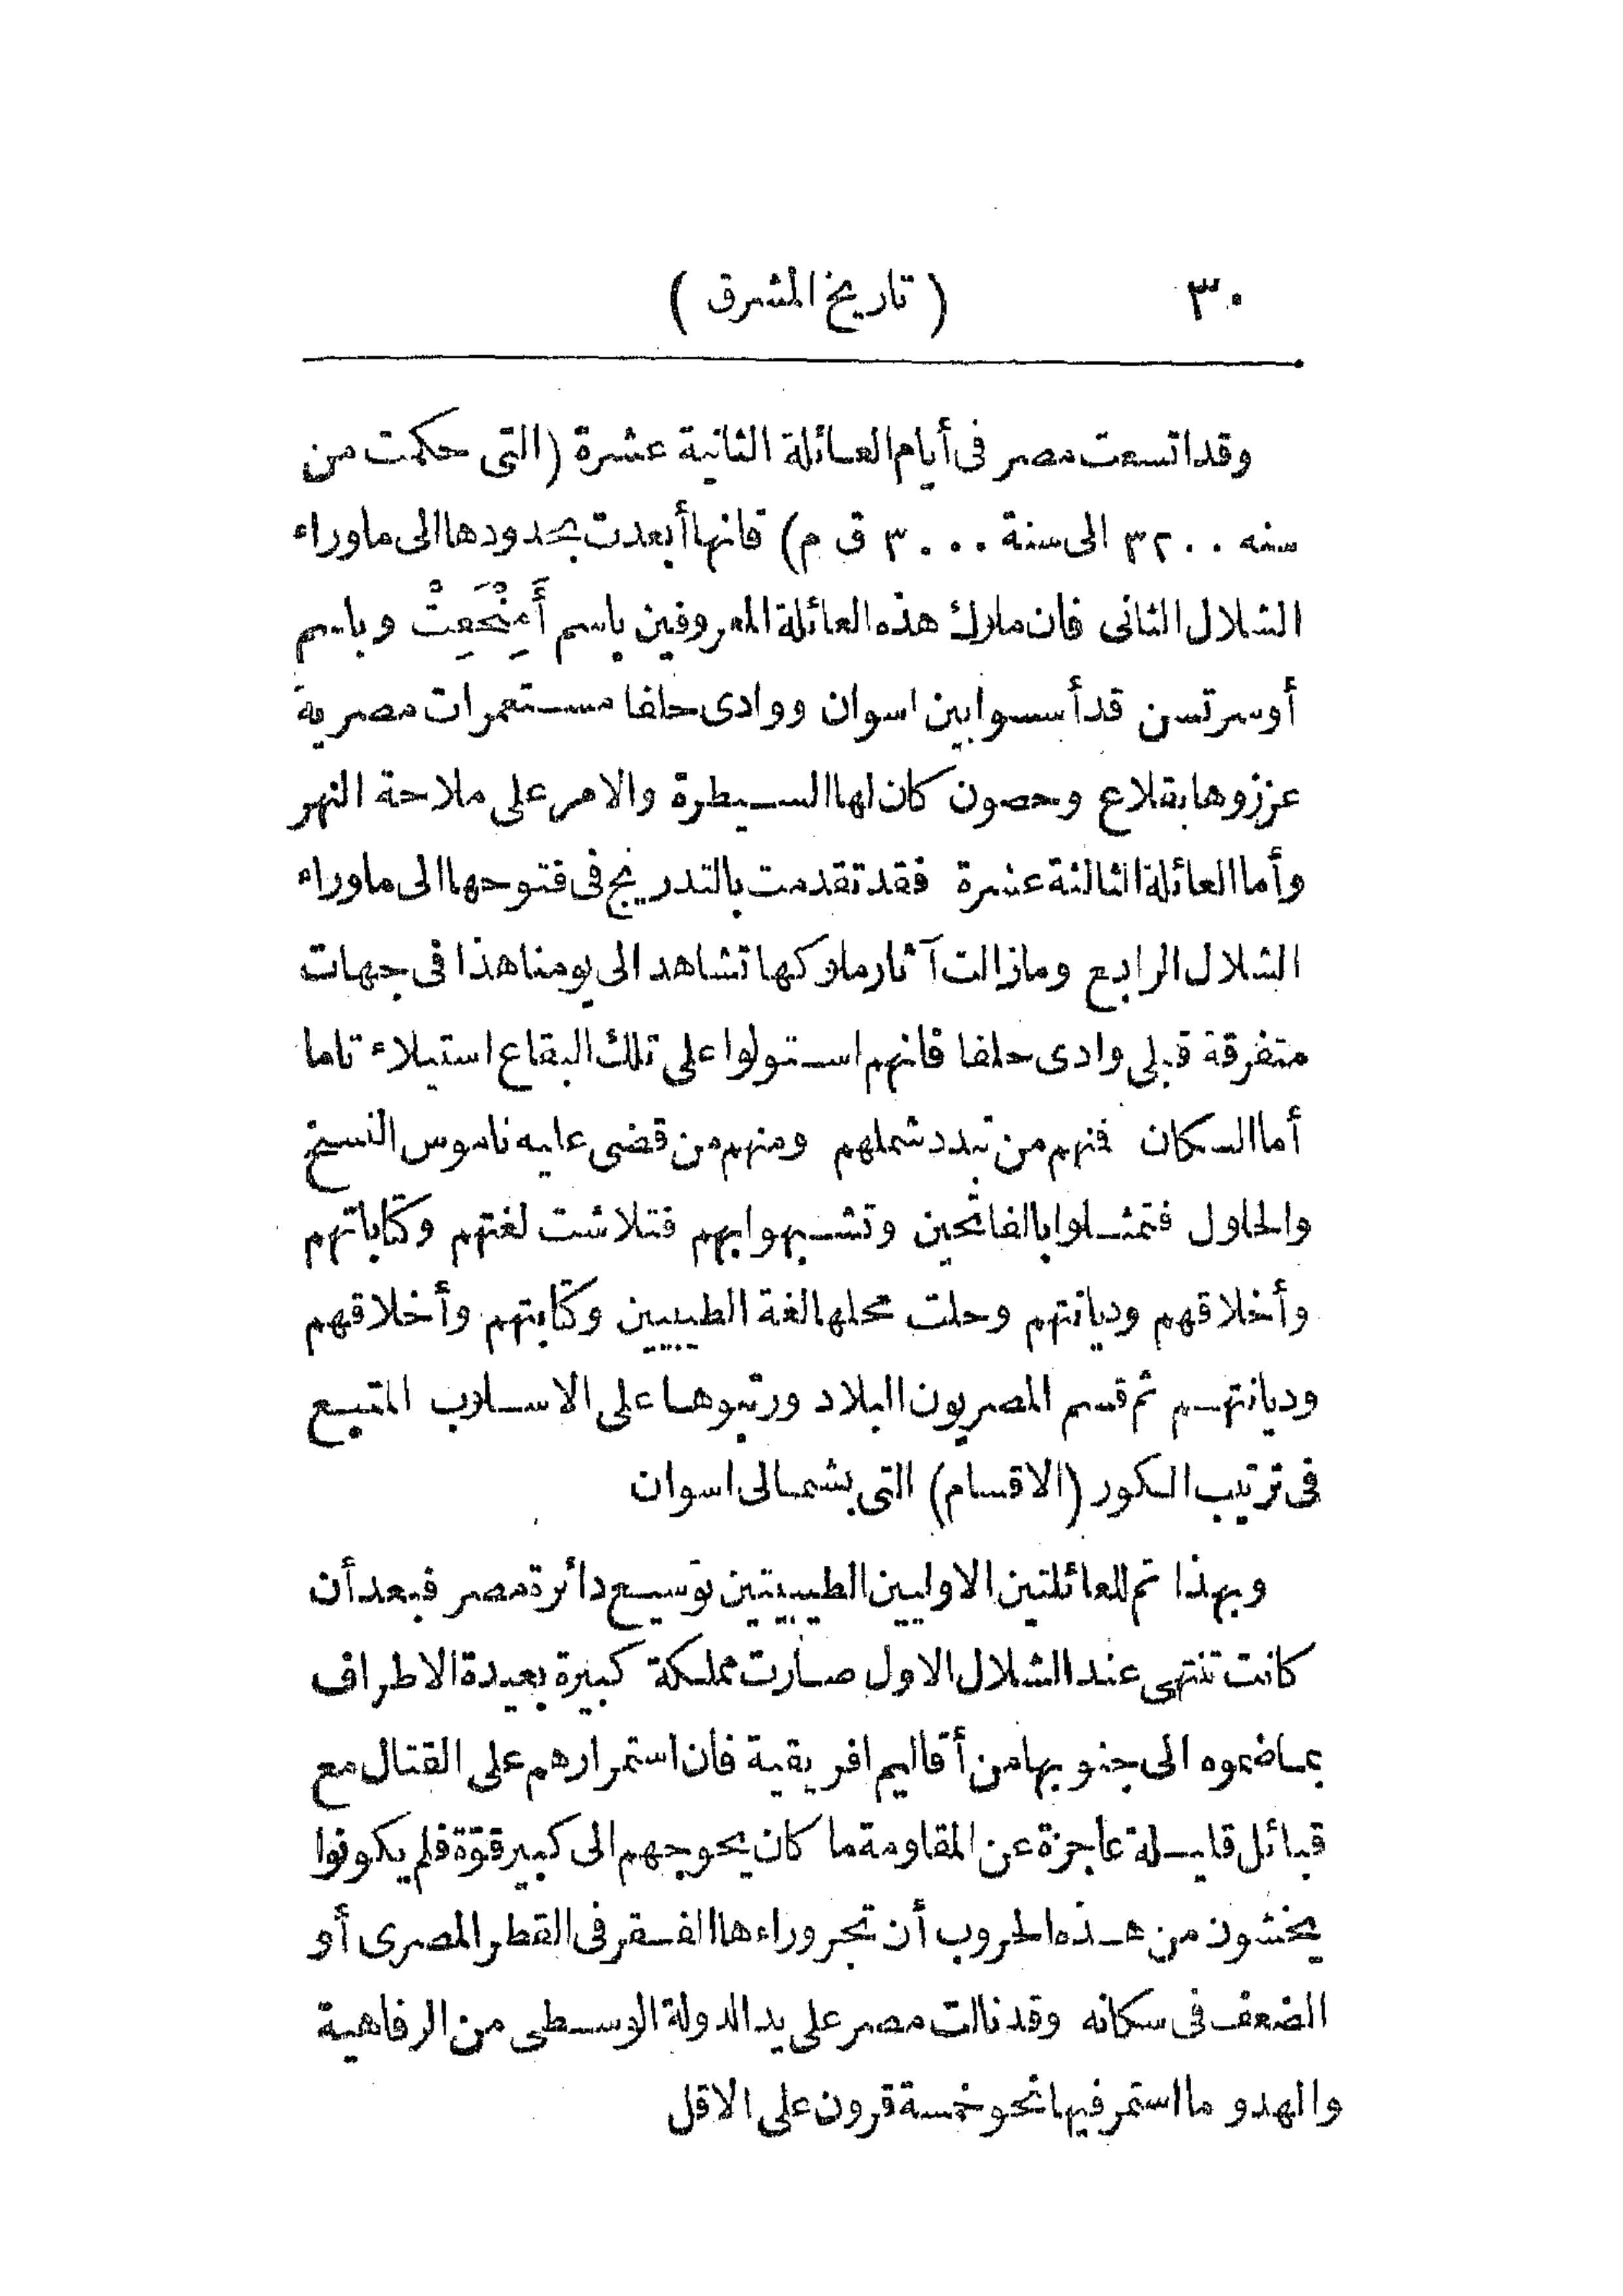 ٣٠ ( تاريخ المشرق )
وقد اتسعت مصر فى أيام العائلة الثانية عشرة (التى حكمت من
سنه ٣٢٠٠ الى سنة ٣٠٠٠ ق م) فانها أبعدت بحدودها الى ماوراء
الشلال الثانى فان ملوك هذه العائلة المعروفين باسم أَمِنْحَعِتْ وباسم
أوسرتسن قد أسسوا بين اسوان ووادى حلفا مستعمرات مصرية
عززوها بقلاع وحصون كان لها السيطرة والامر على ملاحة النهر
وأما العائلة الثالثة عشرة فقد تقدمت بالتدريج فى فتوحها الى ماوراء
الشلال الرابع ومازالت آثار ملوكها تشاهد الى يومنا هذا فى جهات
متفرقة قبلى وادى حلفا فانهم استولوا على تلك البقاع استيلاء تاما
أما السكان فمنهم من تبدد شملهم ومنهم من قضى عليه ناموس النسخ
والحلول فتمثلوا بالفاتحين وتشبهوا بهم فتلاشت لغتهم وكتاباتهم
وأخلاقهم وديانتهم وحلت محلها لغة الطيبيين وكتابتهم وأخلاقهم
وديانتهم ثم قسم المصريون البلاد ورتبوها على الاسلوب المتبع
فى ترتيب الكور (الاقسام) التى بشمالى اسوان
وبهذا تم للعائلتين الاوليين الطيبيتين توسيع دائرة مصر فبعد أن
كانت تنتهى عند الشلال الاول صارت مملكة كبيرة بعيدة الاطراف
بماضموه الى جنوبها من أقاليم افريقية فان استمرارهم على القتال مع
قبائل قليلة عاجزة عن المقاومة ما كان يحوجهم الى كبير قوّة فلم يكونوا
يخشون من هذه الحروب أن تجر وراءها الفقر فى القطر المصرى أو
الضعف فى سكانه وقد نالت مصر على يد الدولة الوسطى من الرفاهية
والهدو ما استمر فيها نحو خمسة قرون على الاقل